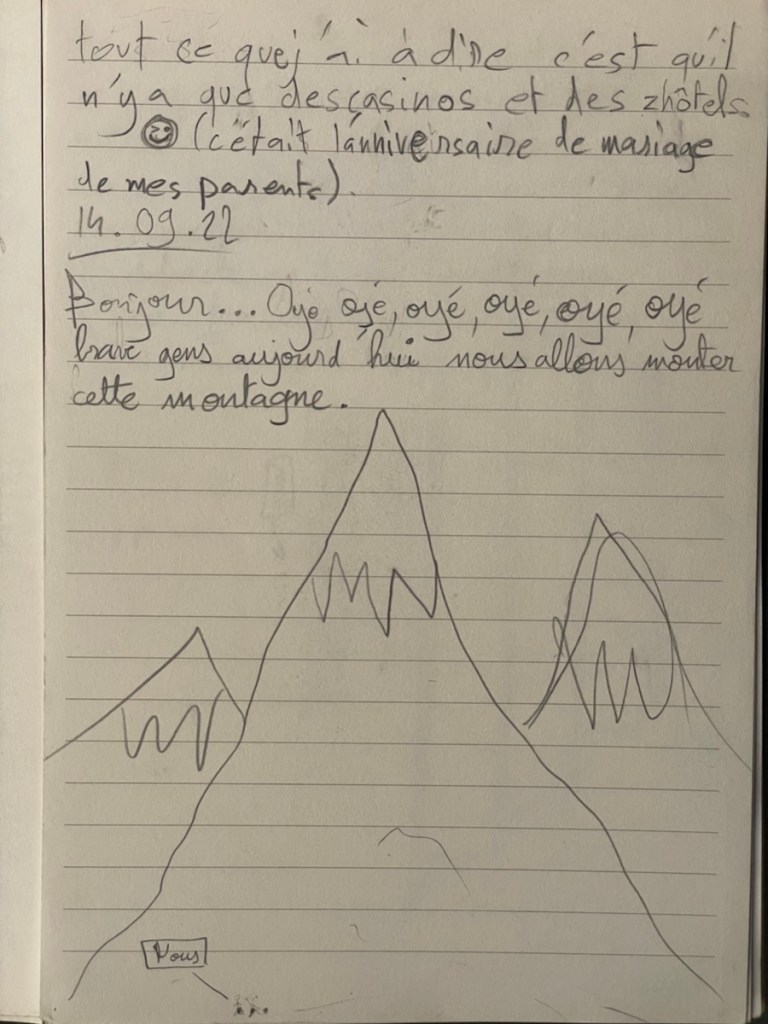 tout ce quej'ai à dire c'est qu'il
n'ya que desçasinos et des zhôtels
(c'était l'anniversaire de mariage
de mes parents).
14.09.22
Bonjour... Oyé oyé, oyé, oyé, oyé, oyé
brave gens aujourd'hui nous allons monter
cette montagne.
Nous